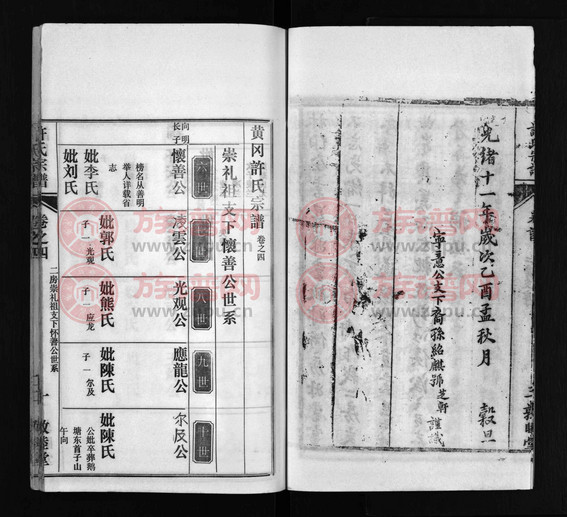 光緒十一年歲次乙酉孟秋月 穀旦
寧意公支下裔孫紹麒號芝軒 謹識
黄冈許氏宗譜 卷之四
崇礼祖支下懷善公世系
六世
八世
九世
十世
向明
长子
懷善公
榜名从善明
举人详载省
志
妣李氏
妣刘氏
凌雲公
妣郭氏
子一光观
光观公
妣熊氏
子一应龙
應龍公
妣陳氏
子一尔及
尔及公
妣陳氏
公妣卒葬鹅
塘东首子山
午向
許氏宗譜
卷之四
二房崇礼祖支下怀善公世系
一
敦睦堂
族谱网
www.zupu.cn